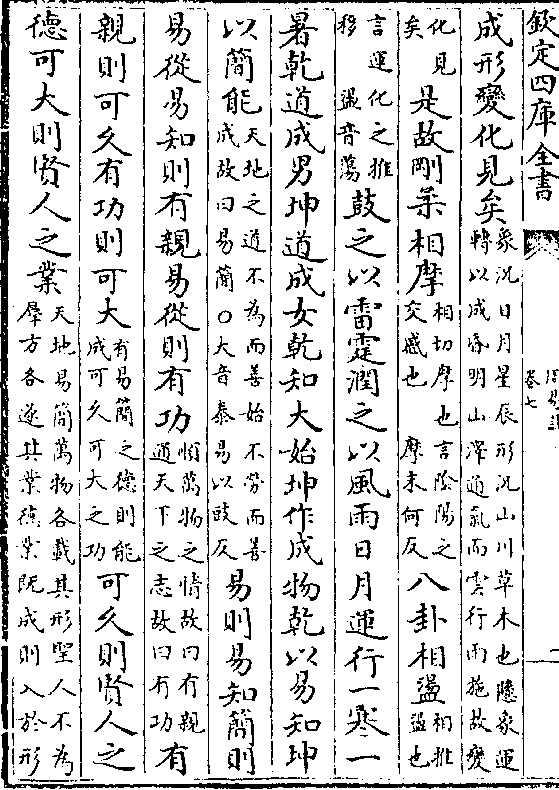 欽定四庫全書
卷七
成形變化見矣象況日月星辰形況山川草木也隱象運轉以成昏明山澤通氣而雲行雨施故變
化見矣是故剛柔相摩相切摩也言陰陽之交感也 摩末何反八卦相盪相推盪也
言運化之推移 盪音蕩鼓之以雷霆潤之以風雨日月運行一寒一
暑乾道成男坤道成女乾知大始坤作成物乾以易知坤
以簡能天地之道不為而善始不勞而善成故曰易簡○大音泰易以豉反易則易知簡則
易從易知則有親易從則有功順萬物之情故曰有親通天下之志故曰有功有
親則可久有功則可大有易簡之德則能成可久可大之功可久則賢人之
德可大則賢人之業天地易簡萬物各載其形聖人不為羣方各遂其業德業既成則入於形